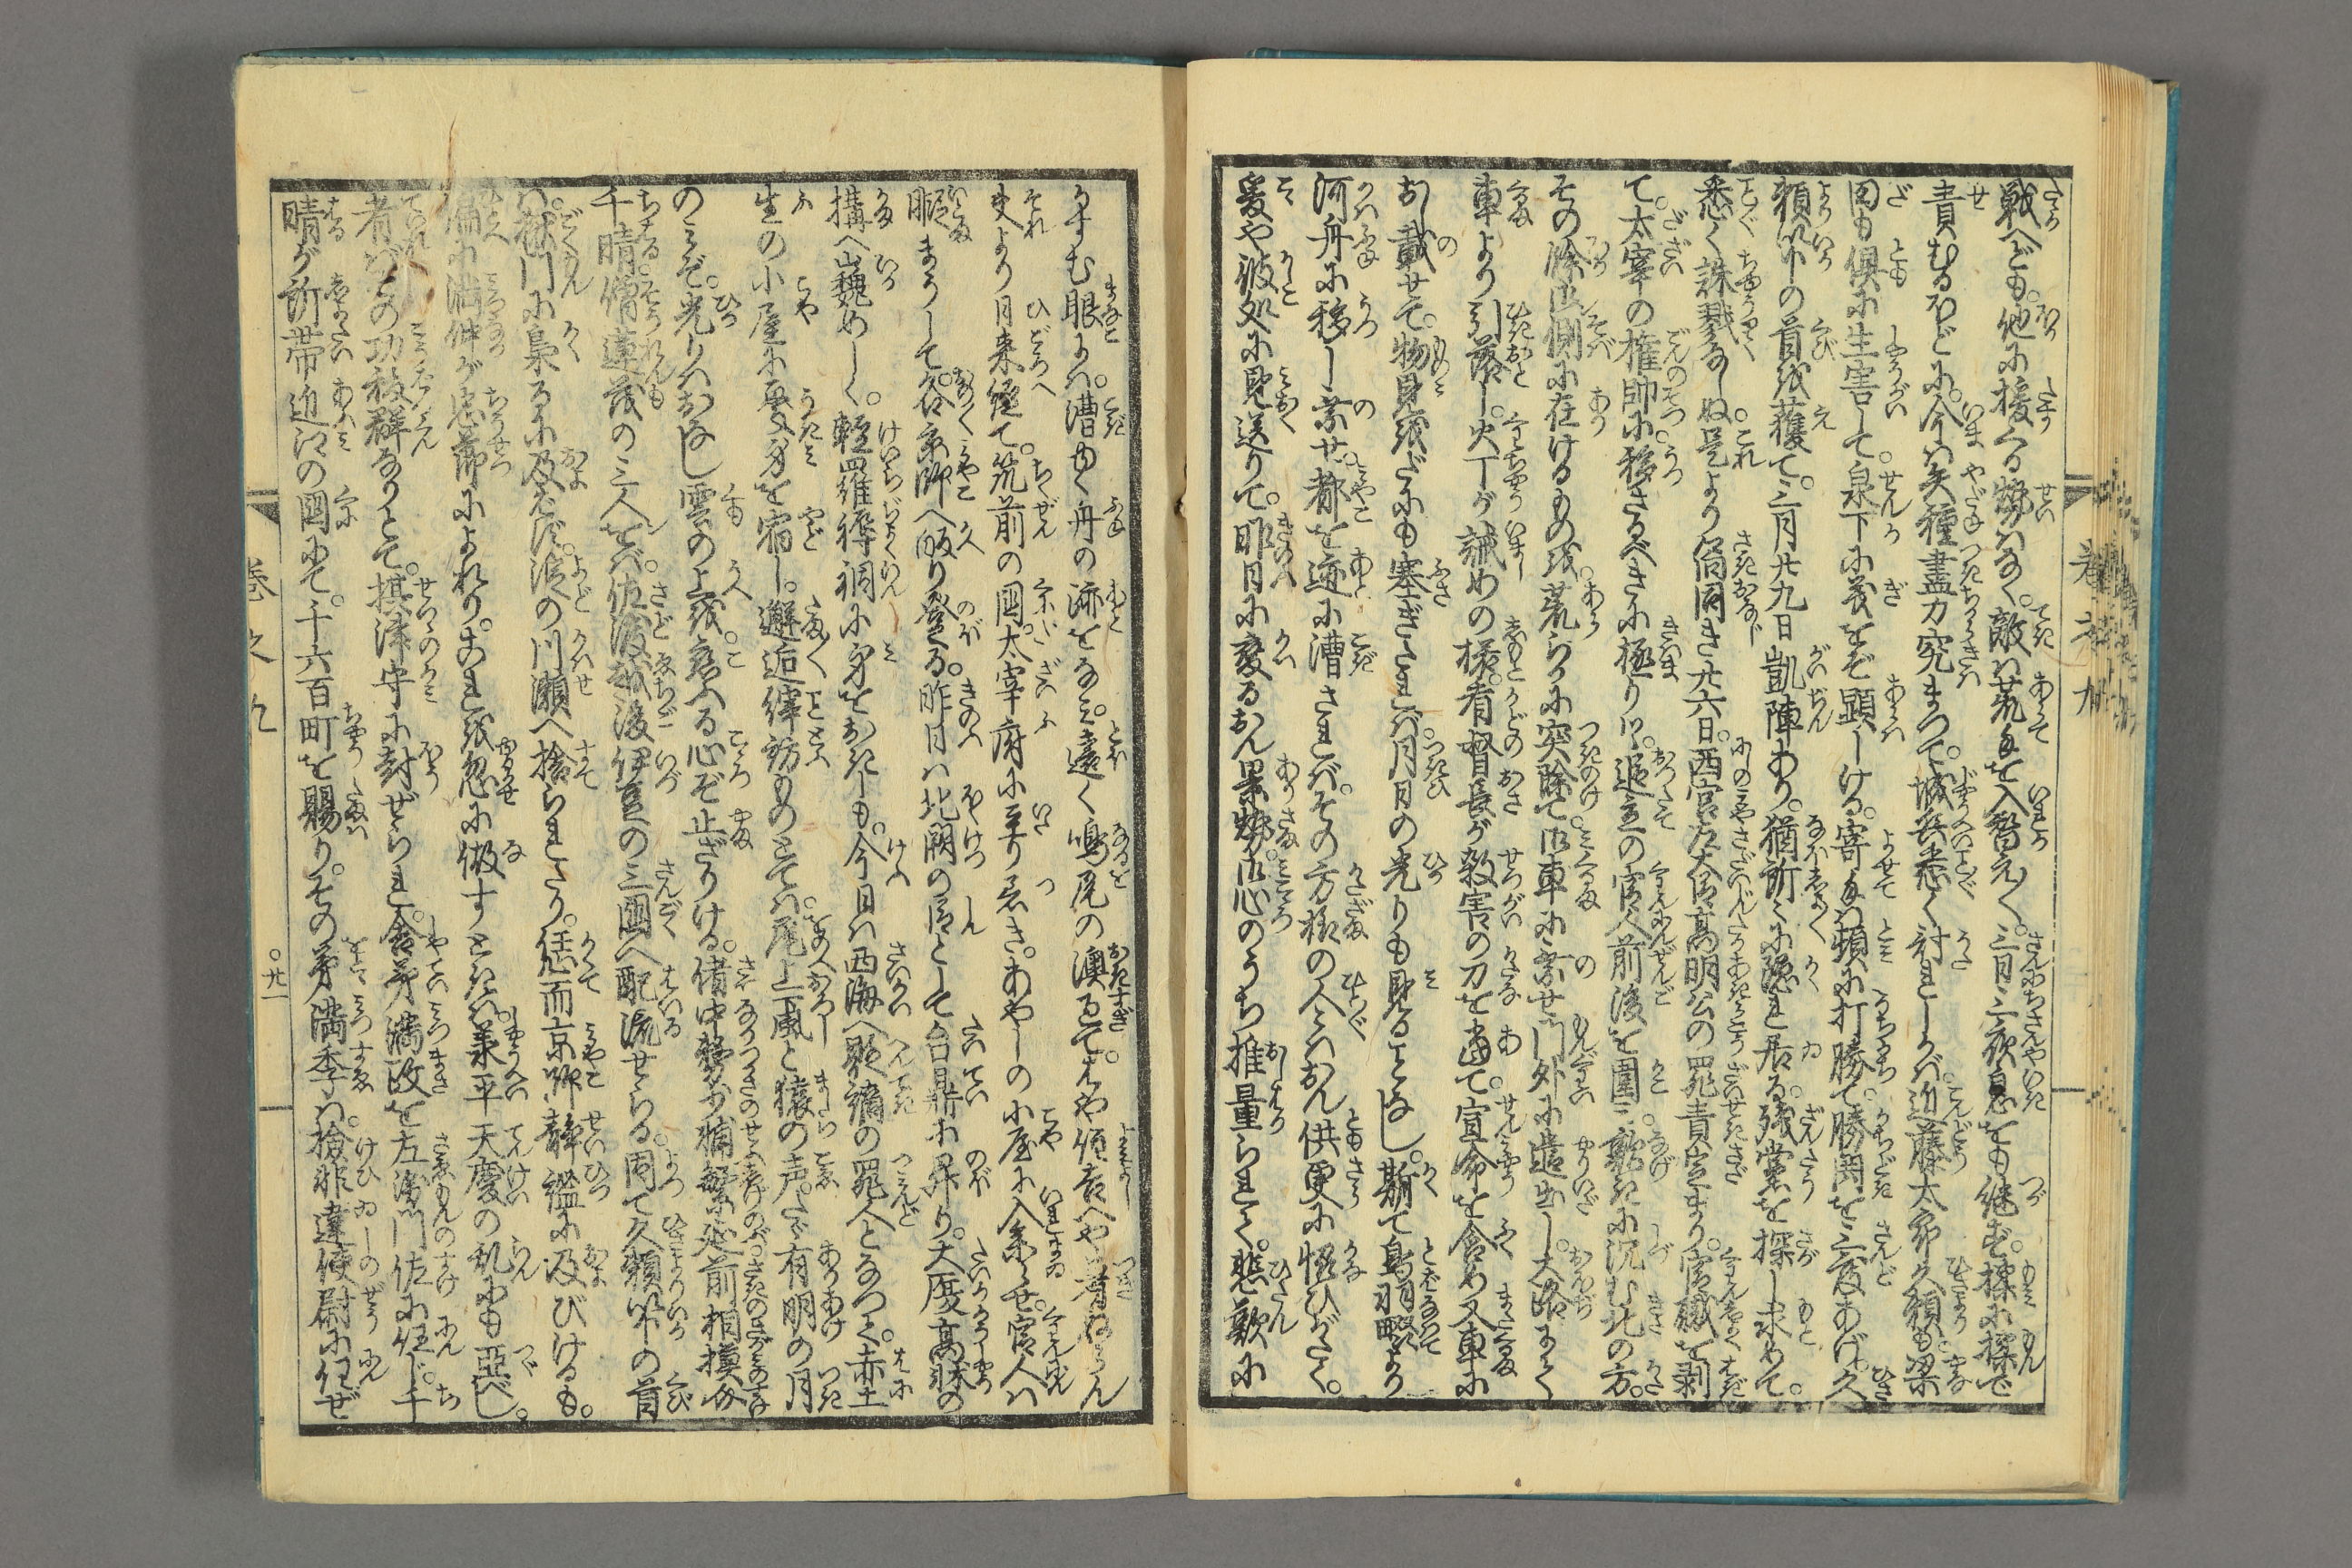 戦へども。他に援くる勢はなく。敵は荒手を入替え〳〵。三日三夜息をも継ず。揉に揉で
責むるほどに。今は矢種盡力究まつて。城兵悉く討れしかば。近藤太郎久頼も梁
田も倶に生害して。泉下に義をぞ顕しける。寄手は頻に打勝て。勝鬨を三度あげ。久
頼等の首級を獲て。三月廿九日凱陣あり。猶所々に隠れ居る。残黨を探し求めて。
悉く誅戮なしぬ。是より前同き廿六日。西宮左大臣高明公の罪責定まり。官職を剥
て。太宰の権帥に移さるべきに極り。追立の官人前後を圍み。歎きに沈む北の方。
その余御側に在けるものを。荒らかに突除て。御車に乗せ門外に遣出し。大路まで
車より引落し。火丁が誡めの楉。看督長が殺害の刀を当て。宣命を含め又車に
お載せて。物見をだにも塞ぎたれば。月日の光りも見ることなし。斯て鳥羽畷より
河舟に移し乗せ。都を迹に漕されば。その方様の人々はおん供更に慍ひがたく。
爰や彼処に見送りて。昨日に変るおん景勢。御心のうち推量られて。悲歎に
かすむ眼には。漕ゆく舟の迹をなみ。遠く鳴尾の澳過て。はや須吉へや着ぬらん
夫より日来経て。筑前の國。太宰府に至り着き。あやしの小屋に入参らせ。官人は
暇まうして各京師へ皈り登る。昨日は北闕の臣として台鼎に昇り。大廈高牆の
搆へ巍々めしく。軽羅褥裀に身をおきしも。今日は西海へ貶謫の罪人となつて。赤土
生の小屋に憂身を宿し。邂逅繹訪ものとては。尾上下風と猿の声。たゞ有明の月
のみぞ。光りはおなし雲の上を。恋ふる心ぞ止ざりける。偖中務少輔繁延。前相模介
千晴。僧蓮茂の三人をば。佐渡越後伊豆の三國へ配流せらる。因て久頼等の首
は。獄門に梟るに及ばず。淀の川瀬へ捨られたり。恁而京師静謐に及びけるも。
偏に満仲が忠節によれり。これを忽に做すときは。承平天慶の乱にも亞べし。
者ばその功抜群なりとて。摂津守に封ぜられ。舎弟満政を左衛門佐に任じ。千
晴が所帯近江の國にて。千六百町を賜り。その弟満季は。検非違使尉に任ぜ
巻之九
〇廿一